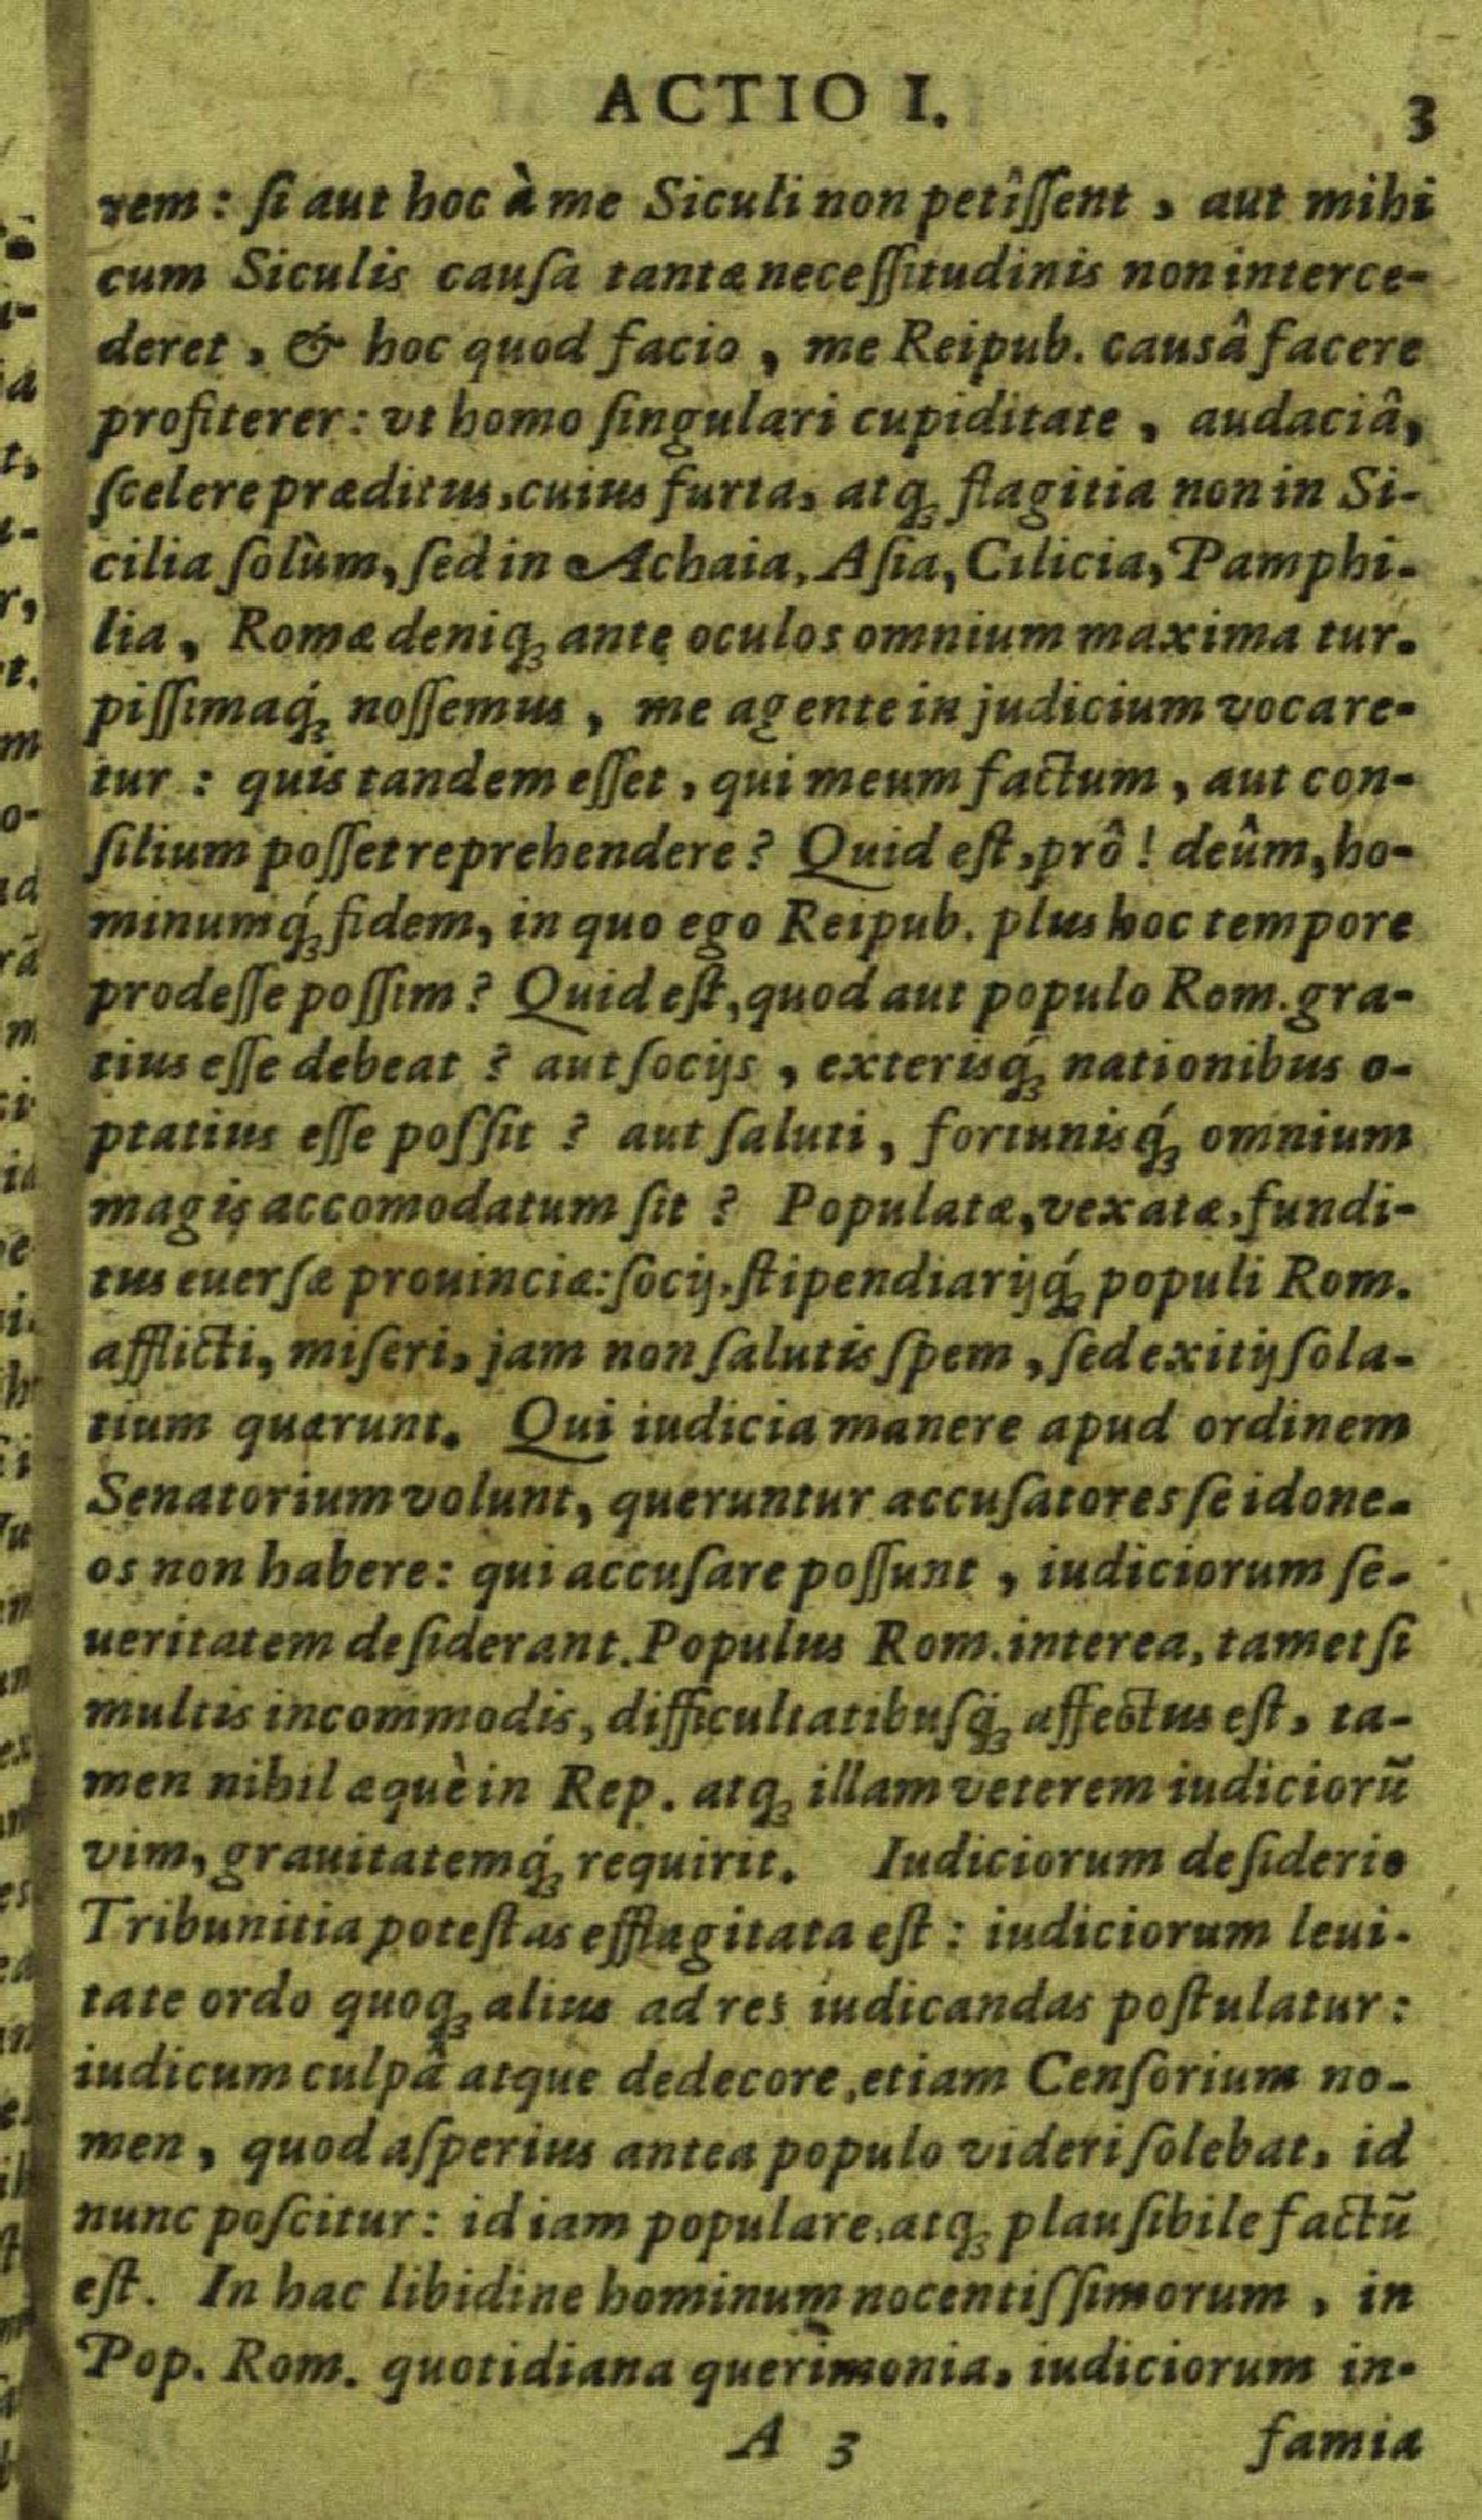 ACTIO I. 3
rem: ſi aut hoc à me Siculi non petîſſent, aut mihi
cum Siculis cauſa tantæ neceſſitudinis non interce-
deret, & hoc quod facio, me Reipub. causâ facere
profiterer: vt homo ſingulari cupiditate, audaciâ,
ſcelere præditus, cuius furta, atq; flagitia non in Si-
cilia ſolùm, ſed in Achaia, Aſia, Cilicia, Pamphi-
lia, Romæ deniq; ante oculos omnium maxima tur-
piſſimaq́; noſſemus, me agente in judicium vocare-
tur: quis tandem eſſet, qui meum factum, aut con-
ſilium poſſet reprehendere? Quid eſt, prô! deûm, ho-
minumq́; fidem, in quo ego Reipub. plus hoc tempore
prodeſſe poſſim? Quid eſt, quod aut populo Rom. gra-
tius eſſe debeat? aut ſocijs, exterisq́; nationibus o-
ptatius eſſe poſſit? aut ſaluti, fortunisq́; omnium
magis accomodatum ſit? Populatæ, vexatæ, fundi-
tus euerſæ prouinciæ: ſocij, ſtipendiarijq́; populi Rom.
afflicti, miſeri, jam non ſalutis ſpem, ſed exitij ſola-
tium quærunt. Qui iudicia manere apud ordinem
Senatorium volunt, queruntur accuſatores ſe idone-
os non habere: qui accuſare poſſunt, iudiciorum ſe-
ueritatem deſiderant. Populus Rom. interea, tametſi
multis incommodis, difficultatibuſq́; affectus eſt, ta-
men nihil æquè in Rep. atq; illam veterem iudiciorũ
vim, grauitatemq́; requirit. Iudiciorum deſiderio
Tribunitia poteſtas efflagitata eſt: iudiciorum leui-
tate ordo quoq; alius ad res iudicandas poſtulatur:
iudicum culpâ atque dedecore, etiam Cenſorium no-
men, quod aſperius antea populo videri ſolebat, id
nunc poſcitur: id iam populare, atq; plauſibile factũ
eſt. In hac libidine hominum nocentiſſimorum, in
Pop. Rom. quotidiana querimonia, iudiciorum in-
A 3 famia